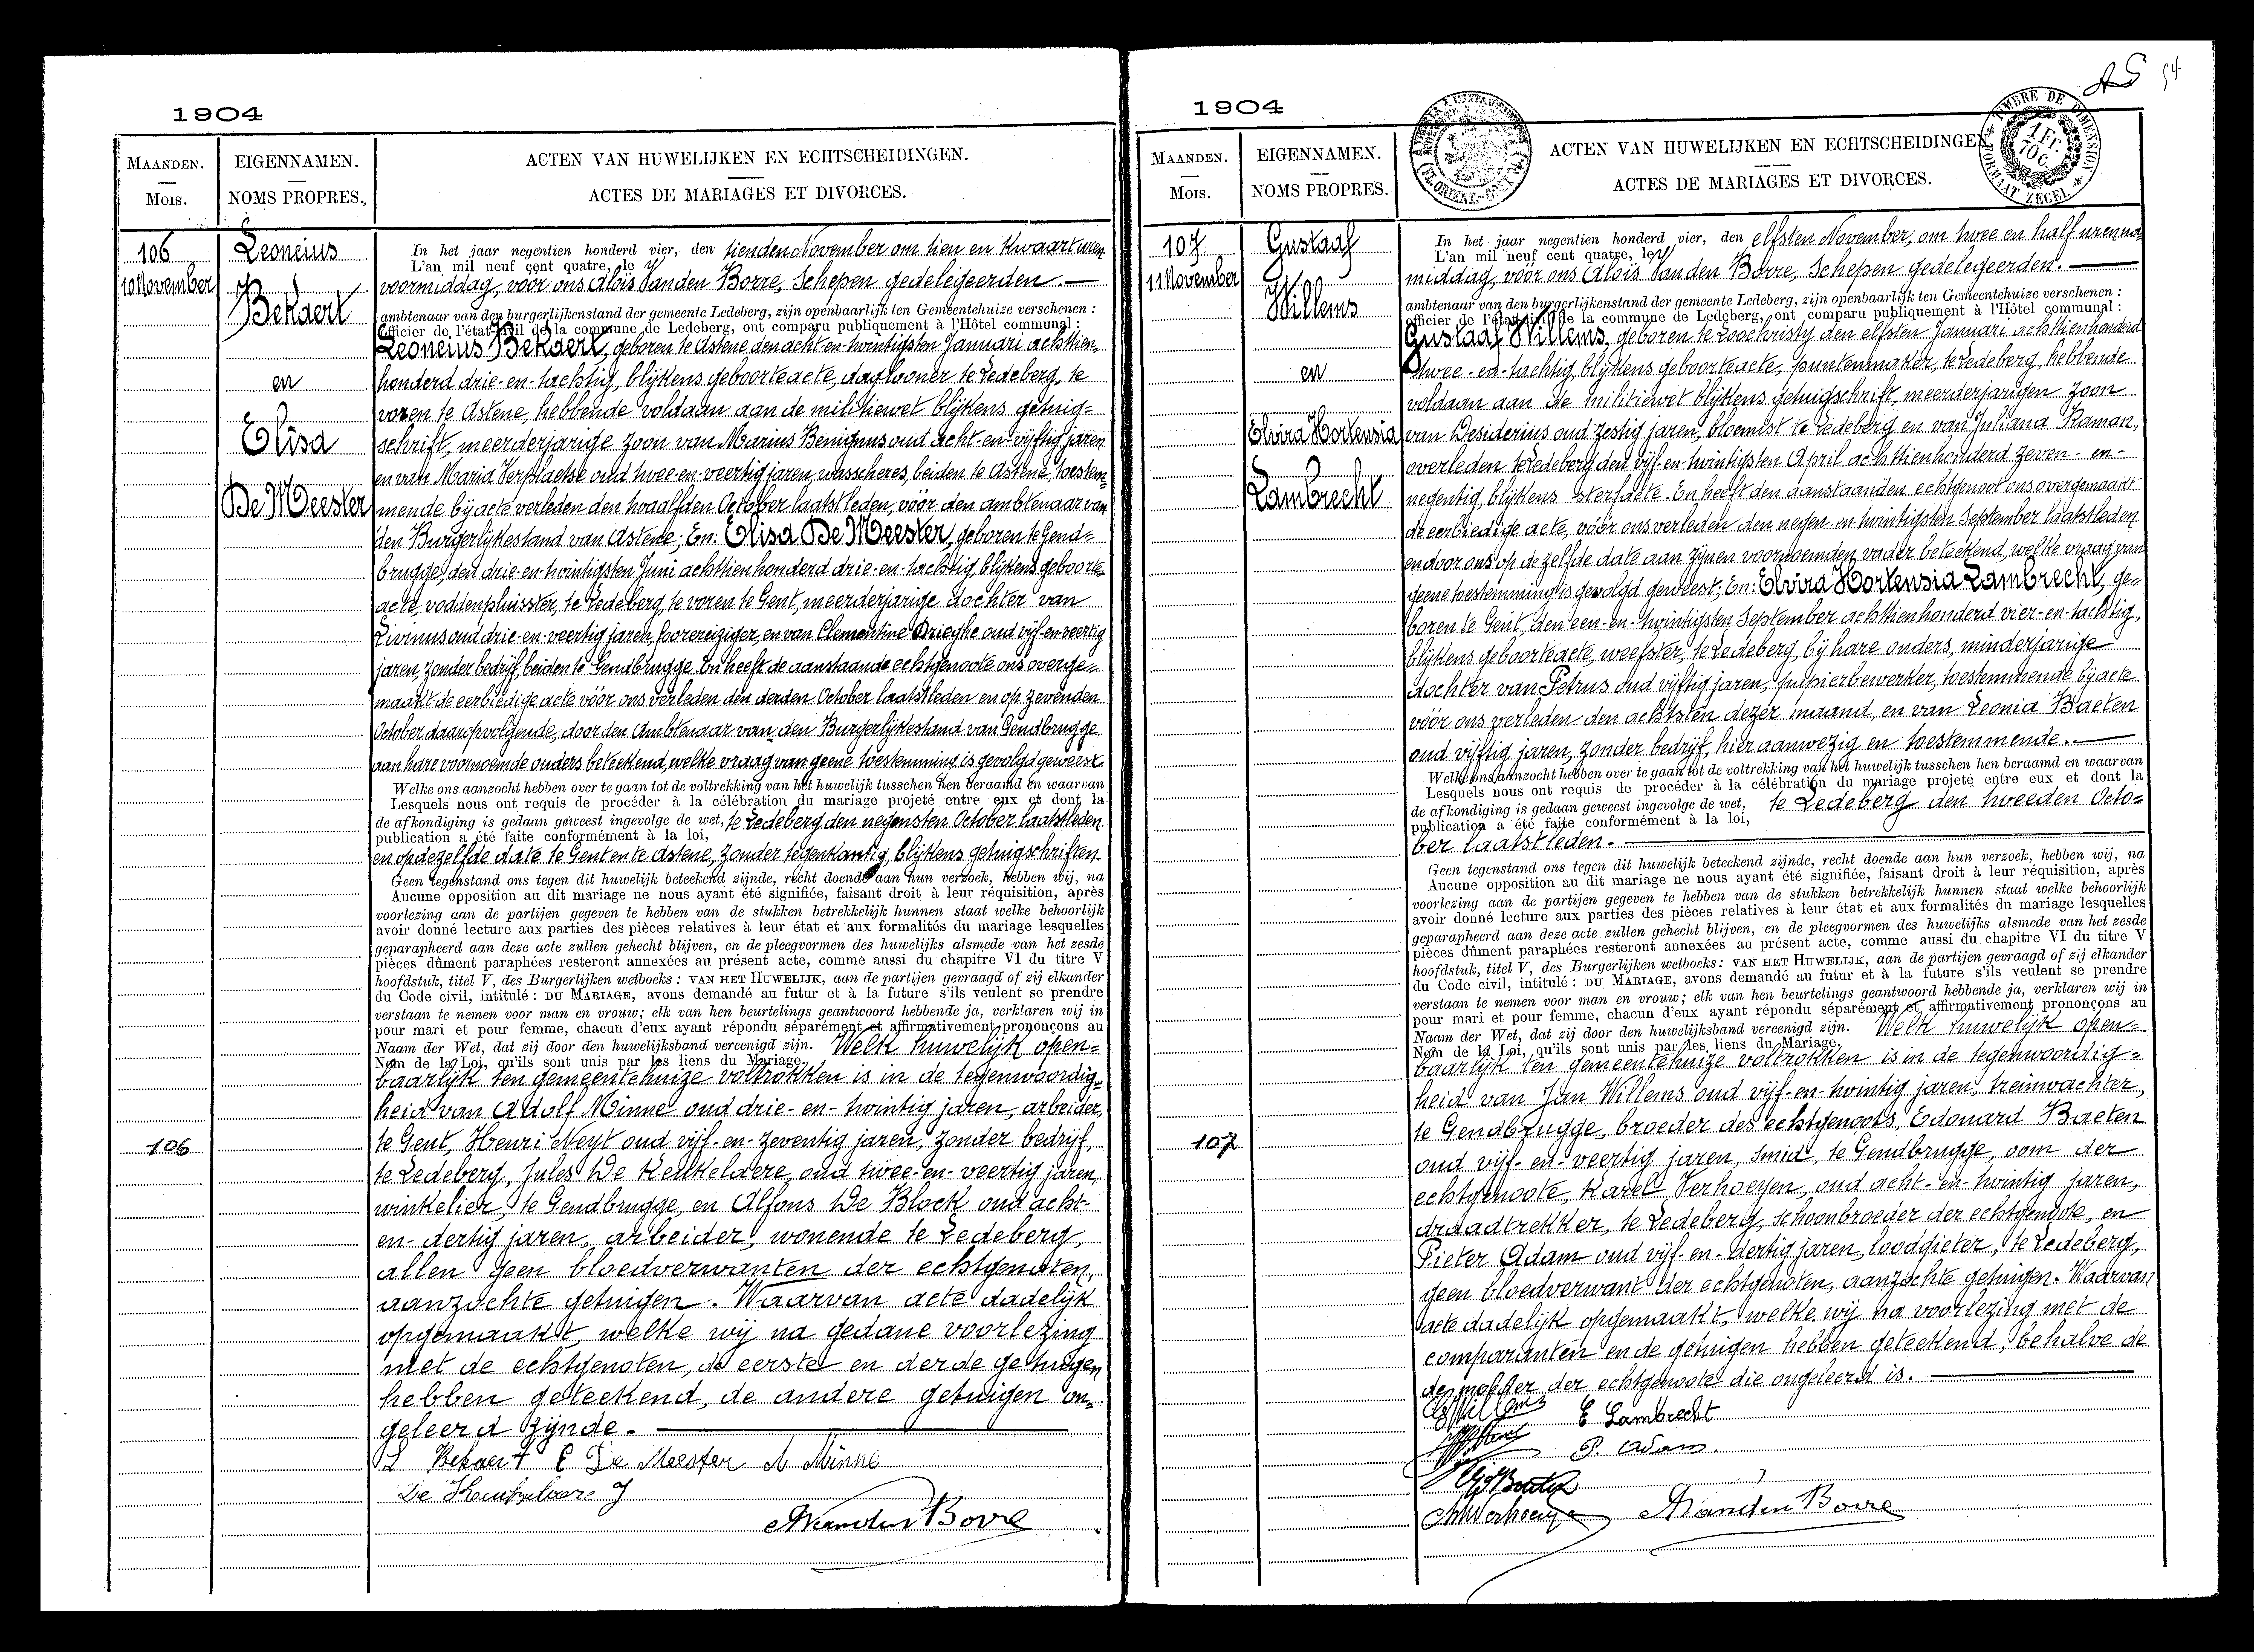 1904
MAANDEN.
Mois.
EIGENNAMEN.
NOMS PROPRES.
ACTEN VAN HUWELIJKEN EN ECHTSCHEIDINGEN.
ACTES DE MARIAGES ET DIVORCES.
106
10 November
Leoncius
Bekaert
en
Elisa
De Meester
106
In het jaar negentien honderd vier, den tienden November om tien en kwaart uren
L'an mil neuf cent quatre, le
voormiddag, voor ons Aloïs Vanden Borre, Schepen gedelegeerden.
ambtenaar van den burgerlijkenstand der gemeente Ledeberg, zijn openbaarlijk ten Gemeentehuize verschenen :
officier de l'état-civil de la commune de Ledeberg, ont comparu publiquement à l'Hôtel communal :
Leoncius Bekaert, geboren te Astene, den acht-en-twintigsten Januari achttien-
honderd drie-en-tachtig, blijkens geboorteacte, daglooner te Ledeberg, te
voren te Astene, hebbende voldaan aan de militiewet blijkens getuig=
schrift, meerderjarige zoon van Marius Benignus oud acht-en-vijftig jaren
en van Maria Verstraetse oud twee-en-veertig jaren, wasscheres, beiden te Astene, toestem=
mende bij acte verleden den twaalfden October laatstleden, vóór den ambtenaar van
den Burgerlijkestand van Astene; En: Elisa De Meester, geboren te Gend=
brugge, den drie-en-twintigsten Juni achttienhonderd drie-en-tachtig, blijkens geboorte=
acte, voddenpluisster, te Ledeberg, te voren te Gent, meerderjarige dochter van
Livinus oud drie-en-veertig jaren, foorereiziger, en van Clementine Drieghe oud vijf-en-veertig
jaren, zonder bedrijf, beiden te Gendbrugge. En heeft de aanstaande echtgenoote ons overge=
maakt de eerbiedige acte vóór ons verleden den derden October laatstleden en op zevenden
October daaropvolgende, door den Ambtenaar van den Burgerlijkestand van Gendbrugge
aan hare voornoemde ouders beteekend, welke vraag van geene toestemming is gevolgd geweest.
Welke ons aanzocht hebben over te gaan tot de voltrekking van het huwelijk tusschen hen beraamd en waarvan
Lesquels nous ont requis de procéder à la célébration du mariage projeté entre eux et dont la
de afkondiging is gedaan geweest ingevolge de wet, te Ledeberg den negensten October laatstleden
publication a été faite conformément à la loi,
en op dezelfde date te Gent en te Astene, zonder tegenkanting, blijkens getuigschriften.
Geen tegenstand ons tegen dit huwelijk beteekend zijnde, recht doende aan hun verzoek, hebben wij, na
Aucune opposition au dit mariage ne nous ayant été signifiée, faisant droit à leur réquisition, après
voorlezing aan de partijen gegeven te hebben van de stukken betrekkelijk hunnen staat welke behoorlijk
avoir donné lecture aux parties des pièces relatives à leur état et aux formalités du mariage lesquelles
geparapheerd aan deze acte zullen gehecht blijven, en de pleegvormen des huwelijks alsmede van het zesde
pièces dûment paraphées resteront annexées au présent acte, comme aussi du chapitre VI du titre V
hoofdstuk, titel V, des Burgerlijken wetboeks : VAN HET HUWELIJK, aan de partijen gevraagd of zij elkander
du Code civil, intitulé : DU MARIAGE, avons demandé au futur et à la future s'ils veulent se prendre
verstaan te nemen voor man en vrouw; elk van hen beurtelings geantwoord hebbende ja, verklaren wij in
pour mari et pour femme, chacun d'eux ayant répondu séparément et affirmativement, prononçons au
Naam der Wet, dat zij door den huwelijksband vereenigd zijn. Welk huwelijk open=
Nom de la Loi, qu'ils sont unis par les liens du Mariage.
baarlijk ten gemeentehuize voltrokken is in de tegenwoordig=
heid van Adolf Minne oud drie-en-twintig jaren, arbeider,
te Gent, Henri Neyt oud vijf-en-zeventig jaren, zonder bedrijf,
te Ledeberg, Jules De Keukelaere, oud twee-en-veertig jaren,
winkelier, te Gendbrugge, en Alfons De Block oud acht-
en-dertig jaren, arbeider, wonende te Ledeberg,
allen geen bloedverwanten der echtgenoten,
aanzochte getuigen. Waarvan acte dadelijk
opgemaakt, welke wij na gedane voorlezing
met de echtgenoten, de eerste en derde getuigen
hebben geteekend, de andere getuigen on=
geleerd zijnde.
L Bekaert E De Meester A Minne
De Keukelaere J
A Vanden Borre
1904
MAANDEN.
Mois.
EIGENNAMEN.
NOMS PROPRES.
ACTEN VAN HUWELIJKEN EN ECHTSCHEIDINGEN.
ACTES DE MARIAGES ET DIVORCES.
TIMBRE DE DIMENSION
1 Fr.
70 c.
FORMAAT ZEGEL
54
107
11 November
Gustaaf
Willems
en
Elvira Hortensia
Lambrecht
107
In het jaar negentien honderd vier, den elfsten November, om twee en half uren na-
L'an mil neuf cent quatre, le
middag, vóór ons Aloïs Vanden Borre, Schepen gedelegeerden.
ambtenaar van den burgerlijkenstand der gemeente Ledeberg, zijn openbaarlijk ten Gemeentehuize verschenen :
officier de l'état-civil de la commune de Ledeberg, ont comparu publiquement à l'Hôtel communal :
Gustaaf Willems, geboren te Loochristy den elfsten Januari achttienhonderd
twee-en-tachtig, blijkens geboorteacte, puntenmaker, te Ledeberg, hebbende
voldaan aan de militiewet blijkens getuigschrift, meerderjarigen zoon
van Desiderius oud zestig jaren, bloemist te Ledeberg en van Juliana Raman,
overleden te Ledeberg den vijf-en-twintigsten April achttienhonderd zeven-en-
negentig, blijkens sterfacte. En heeft den aanstaanden echtgenoot ons overgemaakt
de eerbiedige acte, vóór ons verleden den negen-en-twintigsten September laatstleden
en door ons op dezelfde date aan zijnen voornoemden vader beteekend, welke vraag van
geene toestemming is gevolgd geweest; En: Elvira Hortensia Lambrecht, ge=
boren te Gent, den een-en-twintigsten September achttienhonderd vier-en-tachtig,
blijkens geboorteacte, weefster, te Ledeberg, bij hare ouders, minderjarige
dochter van Petrus oud vijftig jaren, papierbewerker, toestemmende bij acte
vóór ons verleden den achtsten dezer maand, en van Leonia Baeten
oud vijftig jaren, zonder bedrijf, hier aanwezig en toestemmende.
Welke ons aanzocht hebben over te gaan tot de voltrekking van het huwelijk tusschen hen beraamd en waarvan
Lesquels nous ont requis de procéder à la célébration du mariage projeté entre eux et dont la
de afkondiging is gedaan geweest ingevolge de wet, te Ledeberg den tweeden Octo=
publication a été faite conformément à la loi,
ber laatstleden.
Geen tegenstand ons tegen dit huwelijk beteekend zijnde, recht doende aan hun verzoek, hebben wij, na
Aucune opposition au dit mariage ne nous ayant été signifiée, faisant droit à leur réquisition, après
voorlezing aan de partijen gegeven te hebben van de stukken betrekkelijk hunnen staat welke behoorlijk
avoir donné lecture aux parties des pièces relatives à leur état et aux formalités du mariage lesquelles
geparapheerd aan deze acte zullen gehecht blijven, en de pleegvormen des huwelijks alsmede van het zesde
pièces dûment paraphées resteront annexées au présent acte, comme aussi du chapitre VI du titre V
hoofdstuk, titel V, des Burgerlijken wetboeks : VAN HET HUWELIJK, aan de partijen gevraagd of zij elkander
du Code civil, intitulé : DU MARIAGE, avons demandé au futur et à la future s'ils veulent se prendre
verstaan te nemen voor man en vrouw; elk van hen beurtelings geantwoord hebbende ja, verklaren wij in
pour mari et pour femme, chacun d'eux ayant répondu séparément et affirmativement prononçons au
Naam der Wet, dat zij door den huwelijksband vereenigd zijn. Welk huwelijk open=
Nom de la Loi, qu'ils sont unis par les liens du Mariage.
baarlijk ten gemeentehuize voltrokken is in de tegenwoordig=
heid van Jan Willems oud vijf-en-twintig jaren, treinwachter,
te Gendbrugge, broeder des echtgenoots, Edouard Baeten
oud vijf-en-veertig jaren, smid, te Gendbrugge, oom der
echtgenoote, Karel Verhoeyen, oud acht-en-twintig jaren,
draadtrekker, te Ledeberg, schoonbroeder der echtgenoote, en
Pieter Adam oud vijf-en-dertig jaren, loodgieter, te Ledeberg,
geen bloedverwant der echtgenoten, aanzochte getuigen. Waarvan
acte dadelijk opgemaakt, welke wij na voorlezing met de
comparanten en de getuigen hebben geteekend, behalve de
de moeder der echtgenoote die ongeleerd is.
G Willems E Lambrecht
P. Adam.
A Vanden Borre